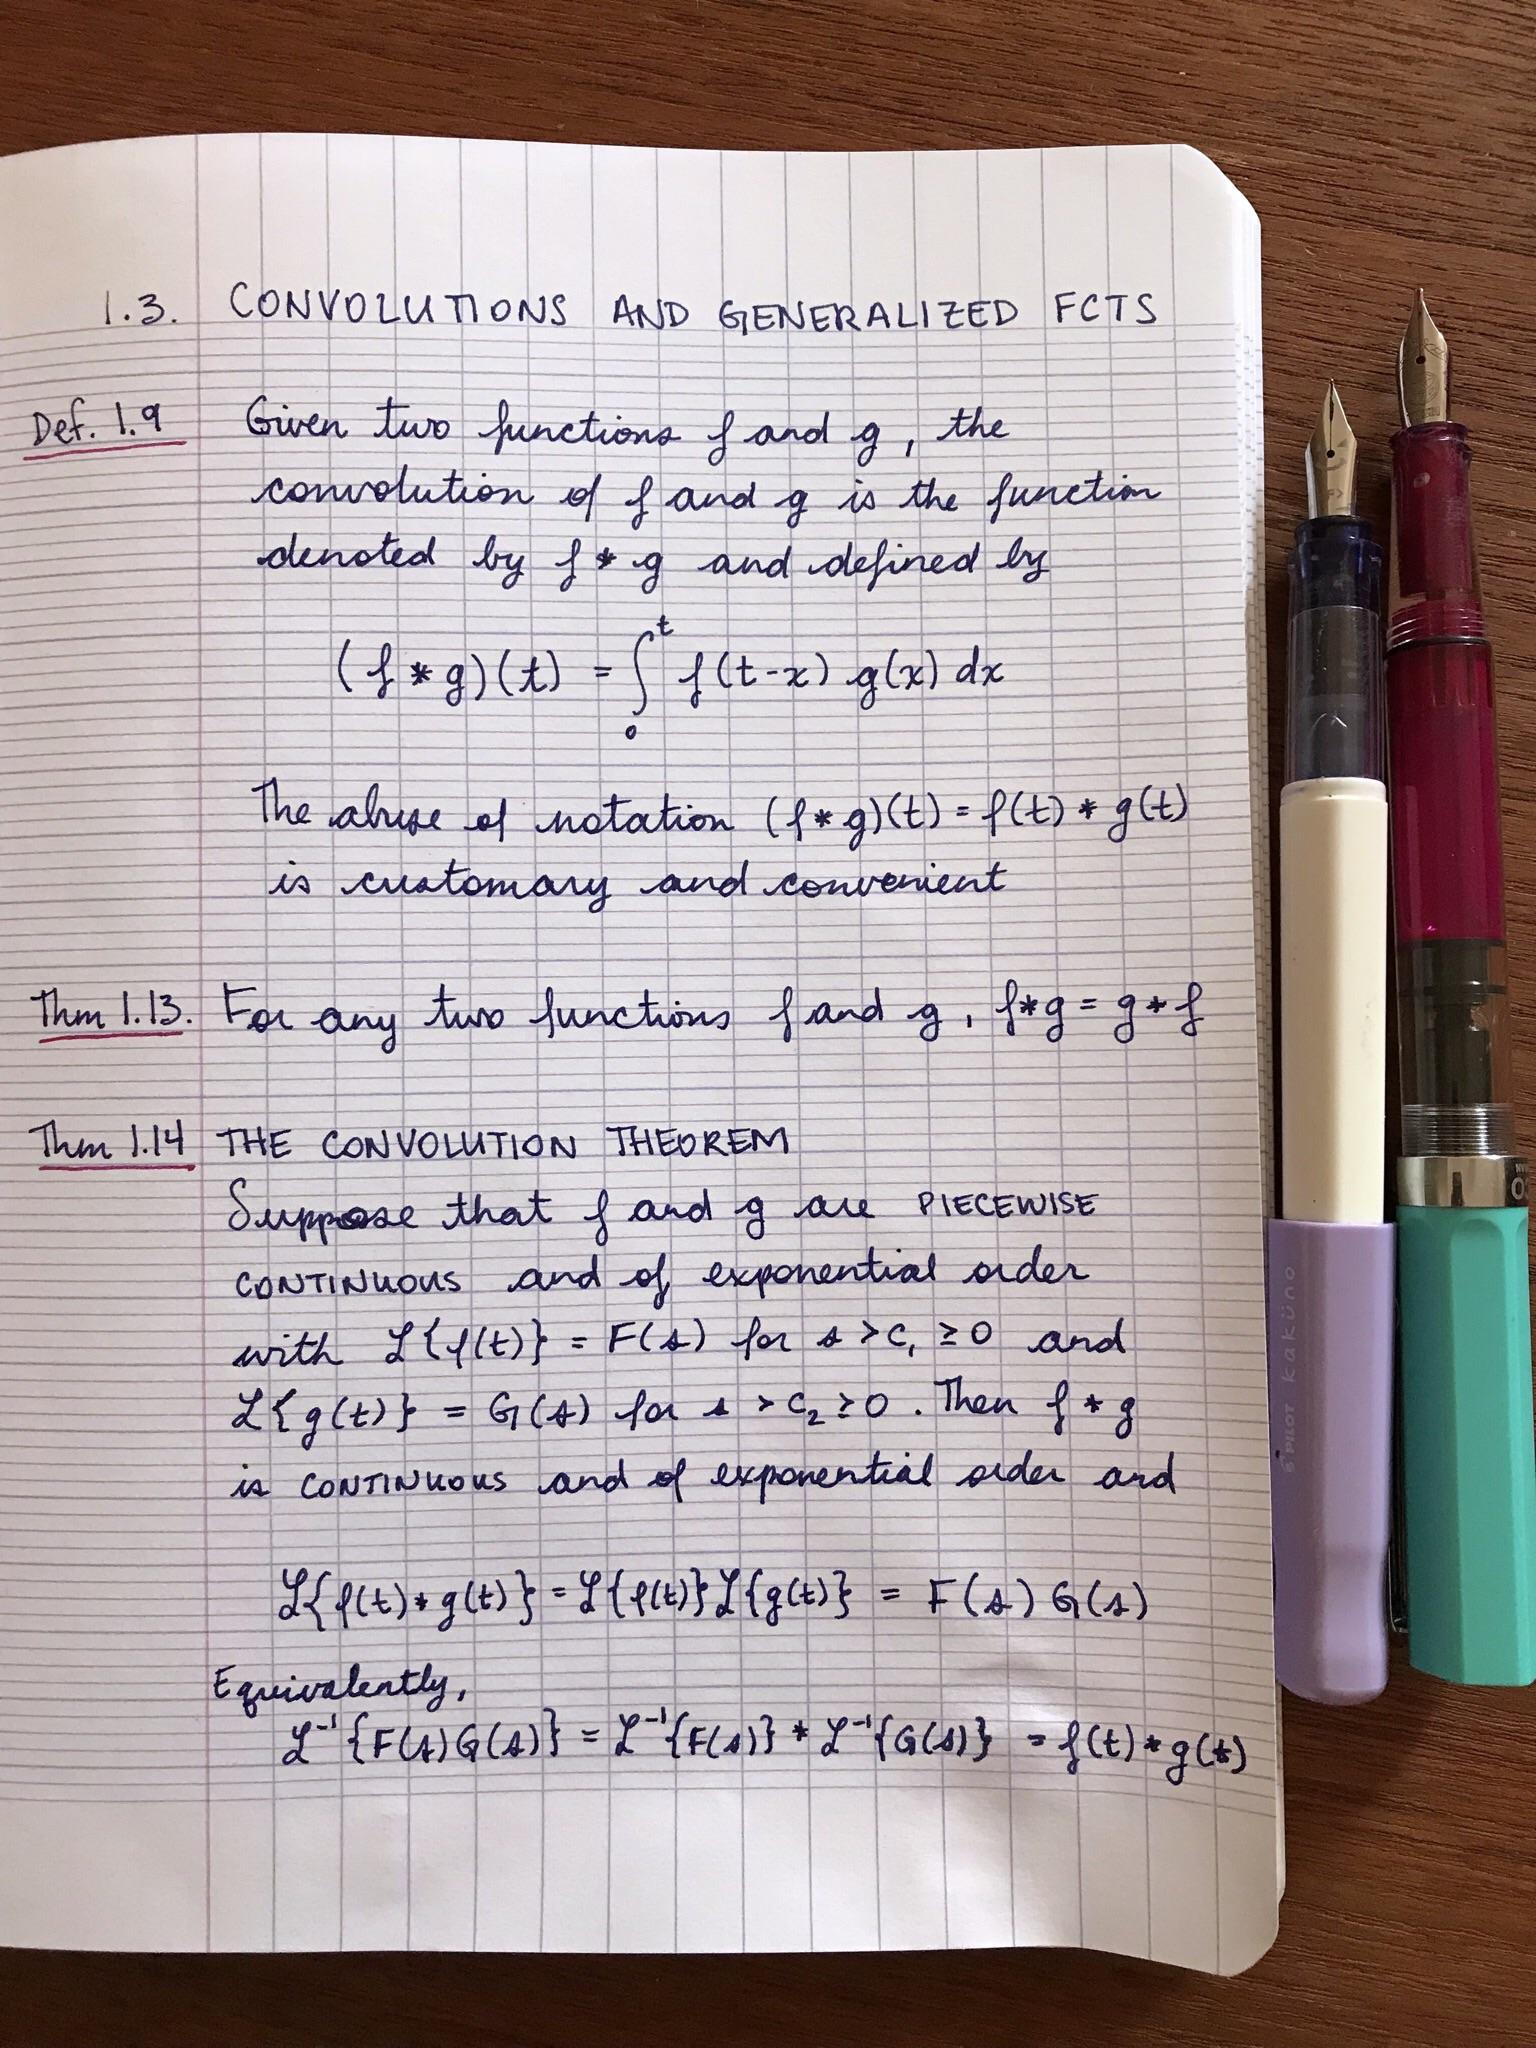 1.3. CONVOLUTIONS AND GENERALIZED FCTS
Def. 1.9 Given two functions f and g, the
convolution of f and g is the function
denoted by f * g and defined by
(f * g)(t) = ∫₀ᵗ f(t-x) g(x) dx
The abuse of notation (f * g)(t) = f(t) * g(t)
is customary and convenient
Thm 1.13. For any two functions f and g, f*g = g*f
Thm 1.14 THE CONVOLUTION THEOREM
Suppose that f and g are PIECEWISE
CONTINUOUS and of exponential order
with ℒ{f(t)} = F(s) for s > c₁ ≥ 0 and
ℒ{g(t)} = G(s) for s > c₂ ≥ 0. Then f * g
is CONTINUOUS and of exponential order and
ℒ{f(t) * g(t)} = ℒ{f(t)}ℒ{g(t)} = F(s) G(s)
Equivalently,
ℒ⁻¹{F(s)G(s)} = ℒ⁻¹{F(s)} * ℒ⁻¹{G(s)} = f(t) * g(t)
PILOT kaküno